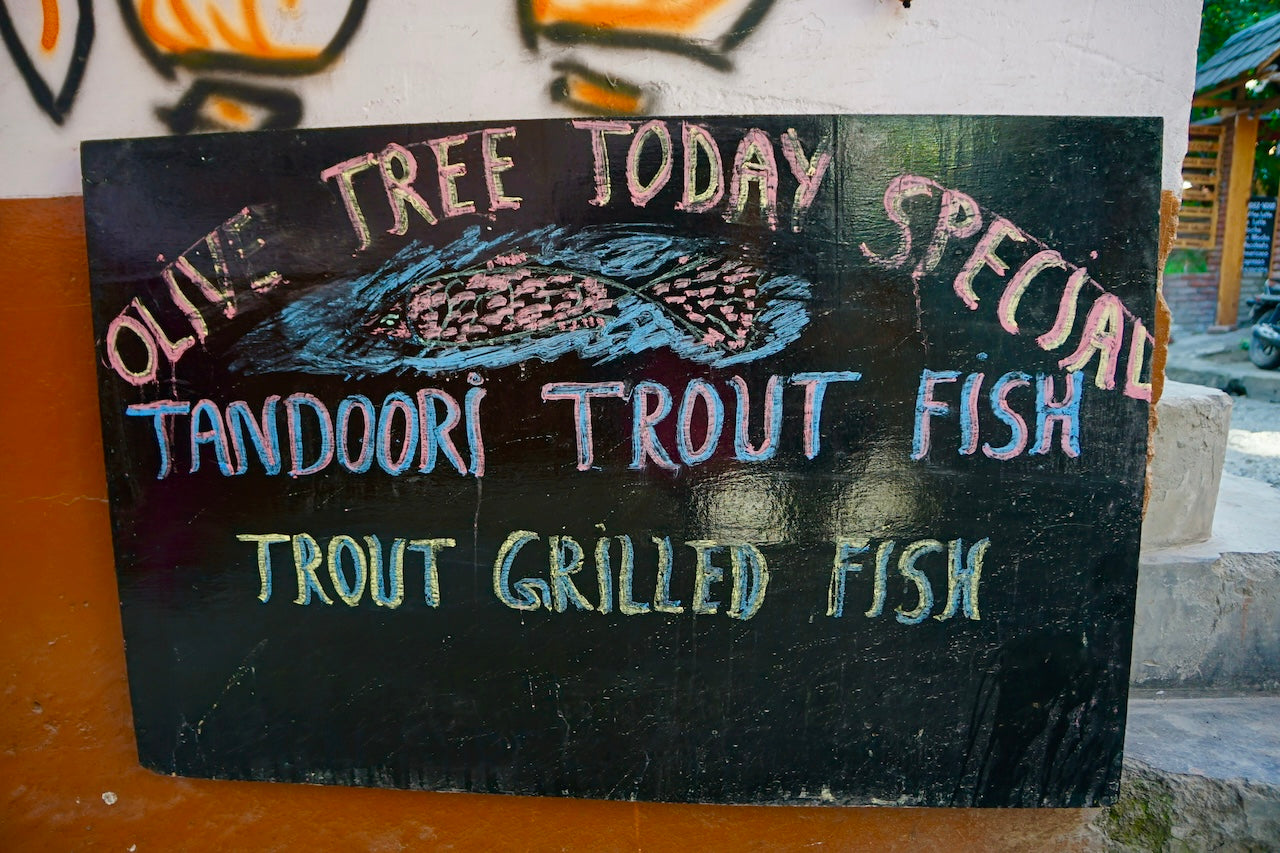 OLIVE TREE TODAY SPECIAL
TANDOORI TROUT FISH
TROUT GRILLED FISH